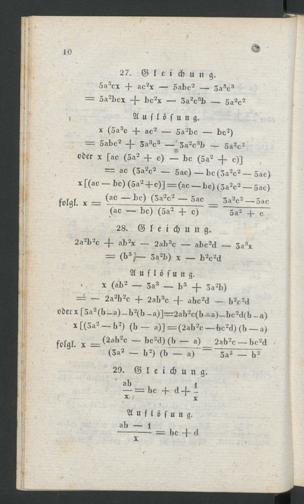 10
27. Gleichung.
5a³cx + ac²x — 5abc² — 3a³c³
= 5a²bcx + bc²x — 3a²c³b — 5a²c²
Auflösung.
x (5a³c + ac² — 5a²bc — bc²)
= 5abc² + 3a³c³ — 3a²c³b — 5a²c²
oder x [ac (5a² + c) — bc (5a² + c)]
= ac (3a²c² — 5ac) — bc (3a²c² — 5ac)
x [(ac — bc) (5a² + c)] = (ac — bc) (3a²c² — 5ac)
folgl. x = (ac — bc) (3a²c² — 5ac / (ac — bc) (5a² + c) = 3a²c² — 5ac / 5a² + c
28. Gleichung.
2a²b²c + ab²x — 2ab³c — abc²d — 3a³x
= (b³ — 3a²b) x — b²c²d
Auflösung.
x (ab² — 3a³ — b³ + 3a²b)
= — 2a²b²c + 2ab³c + abc²d — b²c²d
oder x [3a²(b—a)—b²(b—a)]=2ab²c(b—a)—bc²d(b—a)
x [(3a² — b²) (b — a)] = (2ab²c — bc²d) (b — a)
folgl. x = (2ab²c — bc²d) (b — a) / (3a² — b²) (b — a) = 2ab²c — bc²d / 3a² — b²
29. Gleichung.
ab / x = bc + d + 1 / x
Auflösung.
ab — 1 / x = bc + d